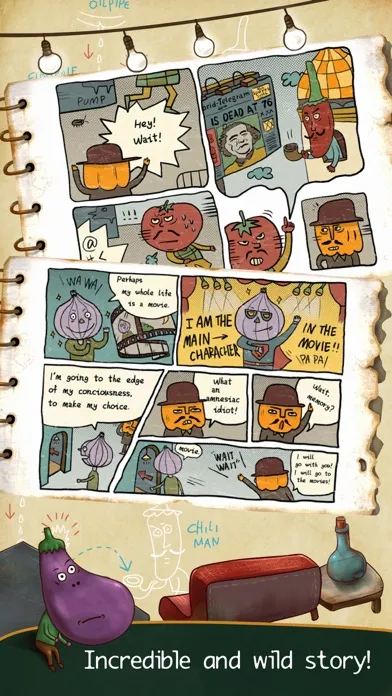 OILPIPE
PUMP
Hey!
Wait!
rid-Telegram
IS DEAD AT 76
!!!
@
WA WA!
Perhaps
my whole life
is a movie.
I AM THE
MAIN →
CHARACHER
IN THE
MOVIE!!
PA PA!
I'm going to the edge
of my conciousness,
to make my choice.
What
an
amnesiac
idiot!
Wait,
memory?
movie.
WAIT
WAIT~
I will
go with you!
I will go
to the movies!
CHILI
MAN
Incredible and wild story!